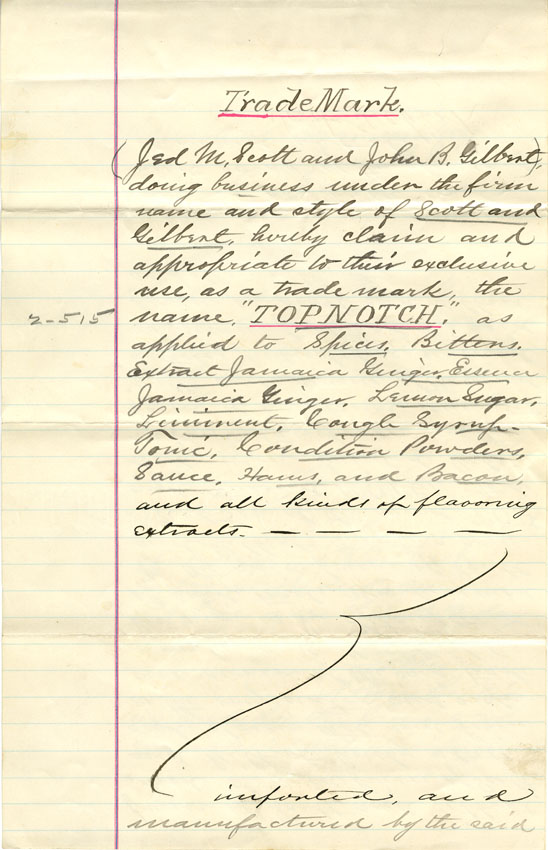 Trade Mark.
(Jed M. Scott and John B. Gilbert),
doing business under the firm
name and style of Scott and
Gilbert, hereby claim and
appropriate to their exclusive
use, as a trade mark, the
2-515 name, "TOPNOTCH," as
applied to Spices, Bitters,
Extract Jamaica Ginger, Essence
Jamaica Ginger, Lemon Sugar,
Liniment, Cough Syrup-
Tonic, Condition Powders,
Sauce, Hams, and Bacon,
and all kinds of flavoring
extracts. — — — —
imported, and
manufactured by the said